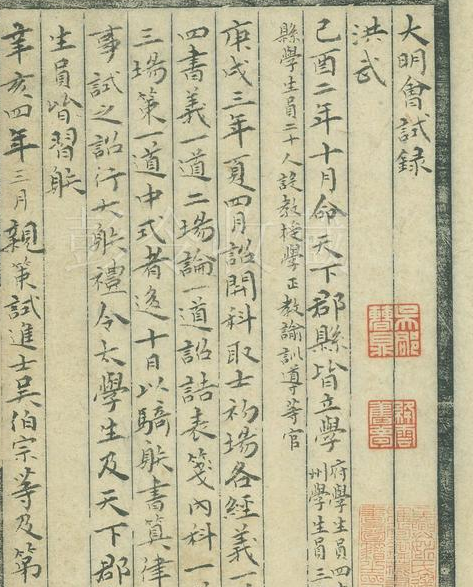 大明會試録
洪武
己酉二年十月命天下郡縣皆立學府學生員四
州學生員三
縣學生員二十人設教授學正教諭訓導等官
庚戌三年夏四月詔開科取士初場各經義一
四書義一道二場論一道詔誥表箋內科一
三場策一道中式者後十日以騎躲書算律
事試之詔行大躲禮令太學生及天下郡
生員皆習躲
辛亥四年三月親策試進士吳伯宗等及第